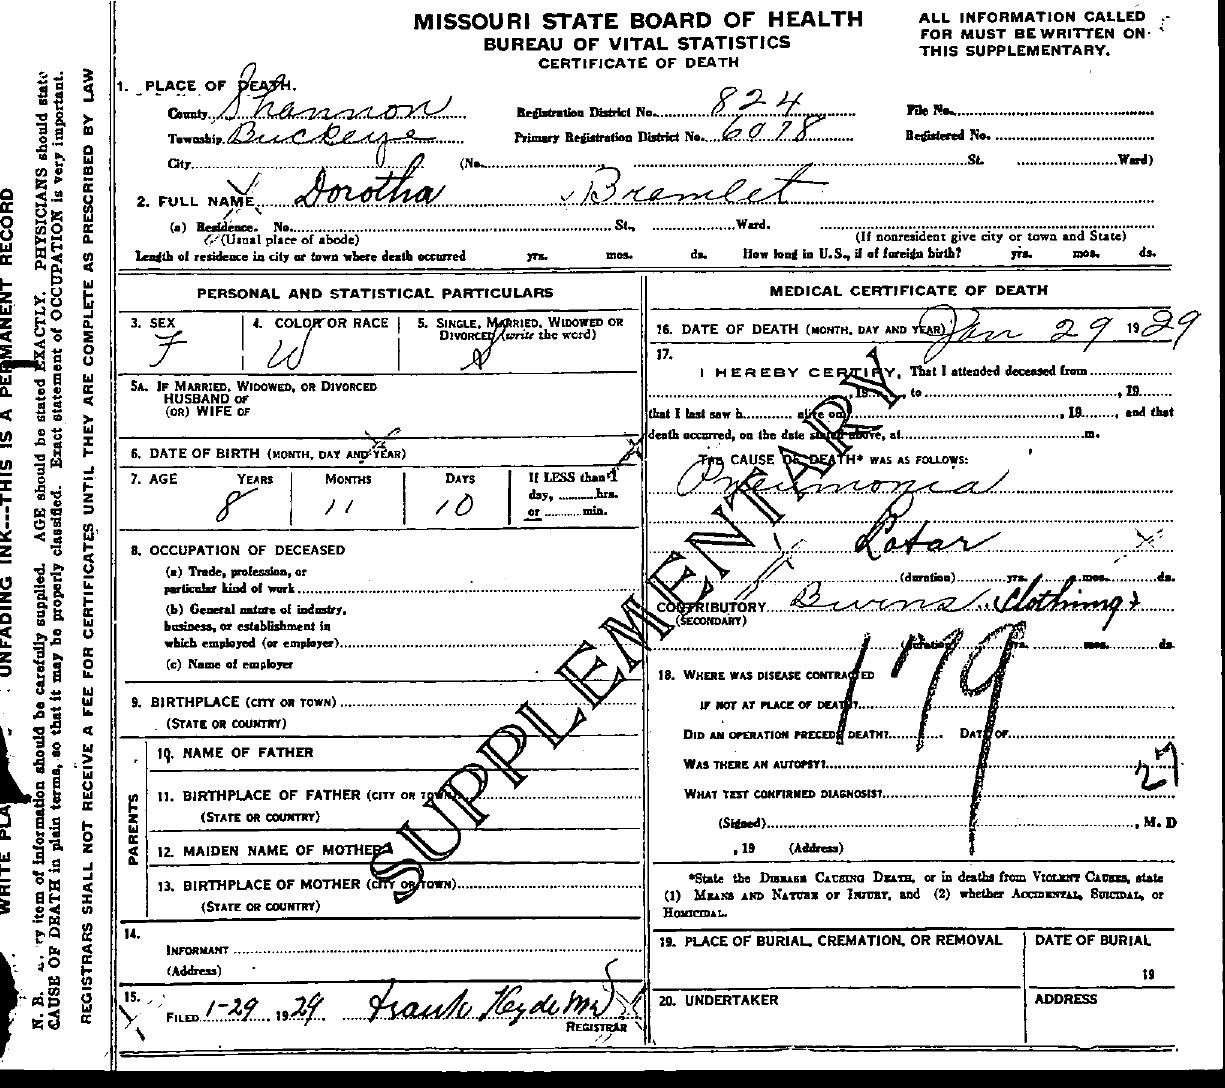 MISSOURI STATE BOARD OF HEALTH
BUREAU OF VITAL STATISTICS
CERTIFICATE OF DEATH
ALL INFORMATION CALLED
FOR MUST BE WRITTEN ON
THIS SUPPLEMENTARY.
1. PLACE OF DEATH.
County Shannon Registration District No. 824 File No.
Township Buckeye Primary Registration District No. 6078 Registered No.
City (No. St. Ward)
2. FULL NAME Dorotha Bramlet
(a) Residence. No. St., Ward.
(Usual place of abode) (If nonresident give city or town and State)
Length of residence in city or town where death occurred yrs. mos. ds. How long in U.S., if of foreign birth? yrs. mos. ds.
PERSONAL AND STATISTICAL PARTICULARS
3. SEX F
4. COLOR OR RACE W
5. SINGLE, MARRIED, WIDOWED OR
DIVORCED (write the word) S
5A. IF MARRIED, WIDOWED, OR DIVORCED
HUSBAND OF
(OR) WIFE OF
6. DATE OF BIRTH (MONTH, DAY AND YEAR)
7. AGE YEARS MONTHS DAYS If LESS than 1
day, hrs.
or min.
8 11 10
8. OCCUPATION OF DECEASED
(a) Trade, profession, or
particular kind of work
(b) General nature of industry,
business, or establishment in
which employed (or employer)
(c) Name of employer
9. BIRTHPLACE (CITY OR TOWN)
(STATE OR COUNTRY)
PARENTS
10. NAME OF FATHER
11. BIRTHPLACE OF FATHER (CITY OR TOWN)
(STATE OR COUNTRY)
12. MAIDEN NAME OF MOTHER
13. BIRTHPLACE OF MOTHER (CITY OR TOWN)
(STATE OR COUNTRY)
14.
INFORMANT
(Address)
15.
FILED 1-29 1929 Frank Hyde MD
REGISTRAR
MEDICAL CERTIFICATE OF DEATH
16. DATE OF DEATH (MONTH, DAY AND YEAR) Jan 29 1929
17.
I HEREBY CERTIFY, That I attended deceased from
, 19 , to , 19
that I last saw h alive on , 19 , and that
death occurred, on the date stated above, at m.
THE CAUSE OF DEATH* WAS AS FOLLOWS:
Pneumonia
Lobar
(duration) yrs. mos. ds.
CONTRIBUTORY Burns Clothing
(SECONDARY)
(duration) yrs. mos. ds.
179
18. WHERE WAS DISEASE CONTRACTED
IF NOT AT PLACE OF DEATH?
DID AN OPERATION PRECEDE DEATH? DATE OF
WAS THERE AN AUTOPSY?
27
WHAT TEST CONFIRMED DIAGNOSIS?
(Signed) , M. D
, 19 (Address)
*State the DISEASE CAUSING DEATH, or in deaths from VIOLENT CAUSES, state
(1) MEANS AND NATURE OF INJURY, and (2) whether ACCIDENTAL, SUICIDAL, or
HOMICIDAL.
19. PLACE OF BURIAL, CREMATION, OR REMOVAL DATE OF BURIAL
19
20. UNDERTAKER ADDRESS
SUPPLEMENTARY
UNFADING INK---THIS IS A PERMANENT RECORD
N. B. item of information should be carefully supplied. AGE should be stated EXACTLY. PHYSICIANS should state
CAUSE OF DEATH in plain terms, so that it may be properly classified. Exact statement of OCCUPATION is very important.
REGISTRARS SHALL NOT RECEIVE A FEE FOR CERTIFICATES UNTIL THEY ARE COMPLETE AS PRESCRIBED BY LAW